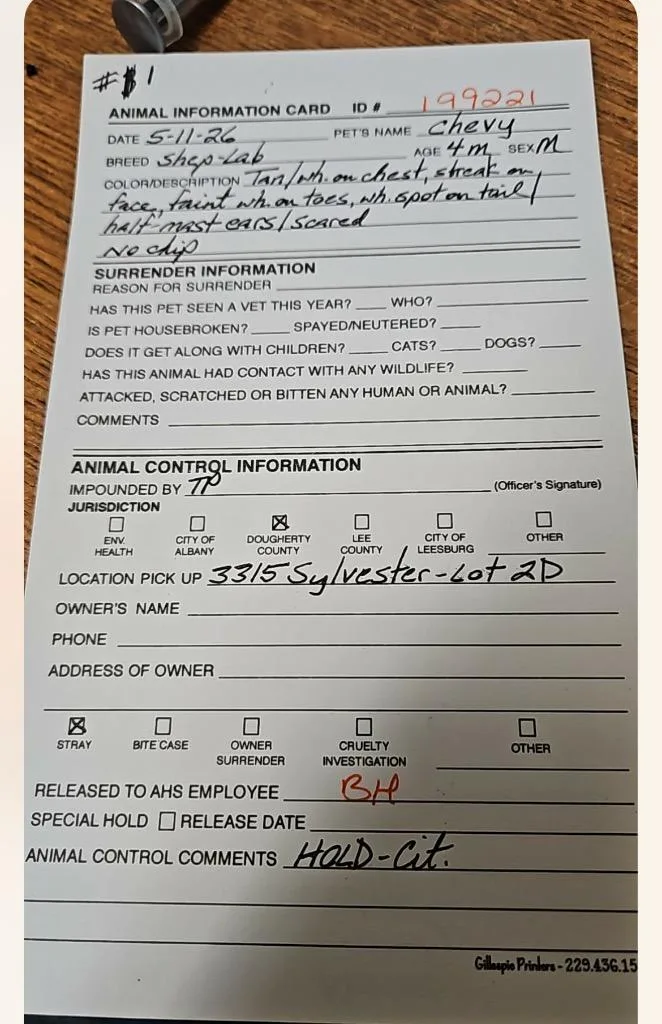 #1
ANIMAL INFORMATION CARD ID # 199221
DATE 5-11-26 PET'S NAME Chevy
BREED Shep-Lab AGE 4m SEX M
COLOR/DESCRIPTION Tan/wh. on chest, streak on
face, faint wh. on toes, wh. spot on tail/
half-mast ears/scared
No chip
SURRENDER INFORMATION
REASON FOR SURRENDER
HAS THIS PET SEEN A VET THIS YEAR? WHO?
IS PET HOUSEBROKEN? SPAYED/NEUTERED?
DOES IT GET ALONG WITH CHILDREN? CATS? DOGS?
HAS THIS ANIMAL HAD CONTACT WITH ANY WILDLIFE?
ATTACKED, SCRATCHED OR BITTEN ANY HUMAN OR ANIMAL?
COMMENTS
ANIMAL CONTROL INFORMATION
IMPOUNDED BY TP (Officer's Signature)
JURISDICTION
ENV. HEALTH CITY OF ALBANY DOUGHERTY COUNTY LEE COUNTY CITY OF LEESBURG OTHER
LOCATION PICK UP 3315 Sylvester-Lot 2D
OWNER'S NAME
PHONE
ADDRESS OF OWNER
STRAY BITE CASE OWNER SURRENDER CRUELTY INVESTIGATION OTHER
RELEASED TO AHS EMPLOYEE BH
SPECIAL HOLD RELEASE DATE
ANIMAL CONTROL COMMENTS HOLD-Cit.
Gillespie Printers - 229.436.15